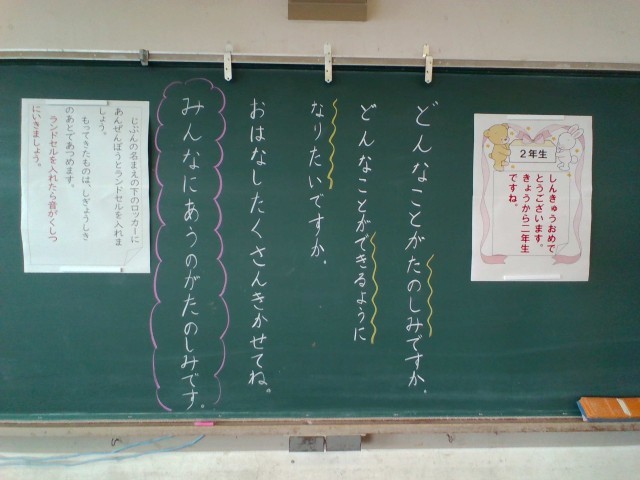 2年生
しんきゅうおめで
とうございます。
きょうから二年生
ですね。
どんなことがたのしみですか。
どんなことができるように
なりたいですか。
おはなしたくさんきかせてね。
みんなにあうのがたのしみです。
じぶんの名まえの下のロッカーに
あんぜんぼうとランドセルを入れま
しょう。
もってきたものは、しぎょうしき
のあとであつめます。
ランドセルを入れたら音がくしつ
にいきましょう。